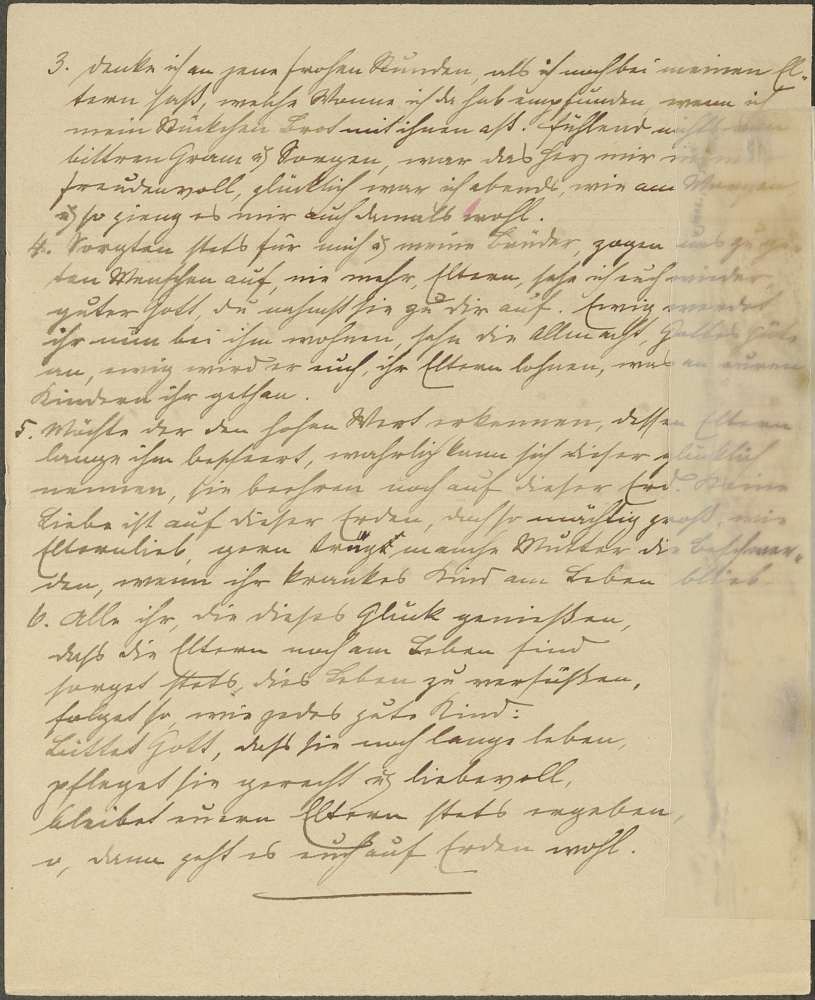 3. Denke ich an jene frohen Stunden, als ich noch bei meinen El-
tern saß, welche Wonne ich da hab empfunden, wenn ich
mein Stückchen Brot mit ihnen aß. Fühlend nichts von
bittren Gram u. Sorgen, war das Herz mir immer
freudenvoll, glücklich war ich abends, wie am Morgen,
u. so gieng es mir auch damals wohl.
4. Sorgten stets für mich u. meine Brüder, zogen uns zu gu-
ten Menschen auf, nie mehr, Eltern, sehe ich euch wieder,
guter Gott, du nahmst sie zu dir auf. Ewig werdet
ihr nun bei ihm wohnen, sehn die Allmacht, Gottes Güte
an, ewig wird er euch, ihr Eltern lohnen, was an euren
Kindern ihr gethan.
5. Möchte der den hohen Wert erkennen, dessen Eltern
lange ihm bescheert, wahrlich kann sich dieser glücklich
nennen, sie beehren noch auf dieser Erd. Keine
Liebe ist auf dieser Erden, doch so mächtig groß, wie
Elternlieb, gern trägt manche Mutter die Beschwer-
den, wenn ihr krankes Kind am Leben blieb.
6. Alle ihr, die dieses Glück genießen,
daß die Eltern noch am Leben sind
sorget stets, dies Leben zu versüßen,
folget so, wie jedes gute Kind:
Bittet Gott, daß sie noch lange leben,
pfleget sie gerecht u. liebevoll,
bleibet euern Eltern stets ergeben,
o, dann geht es euch auf Erden wohl.